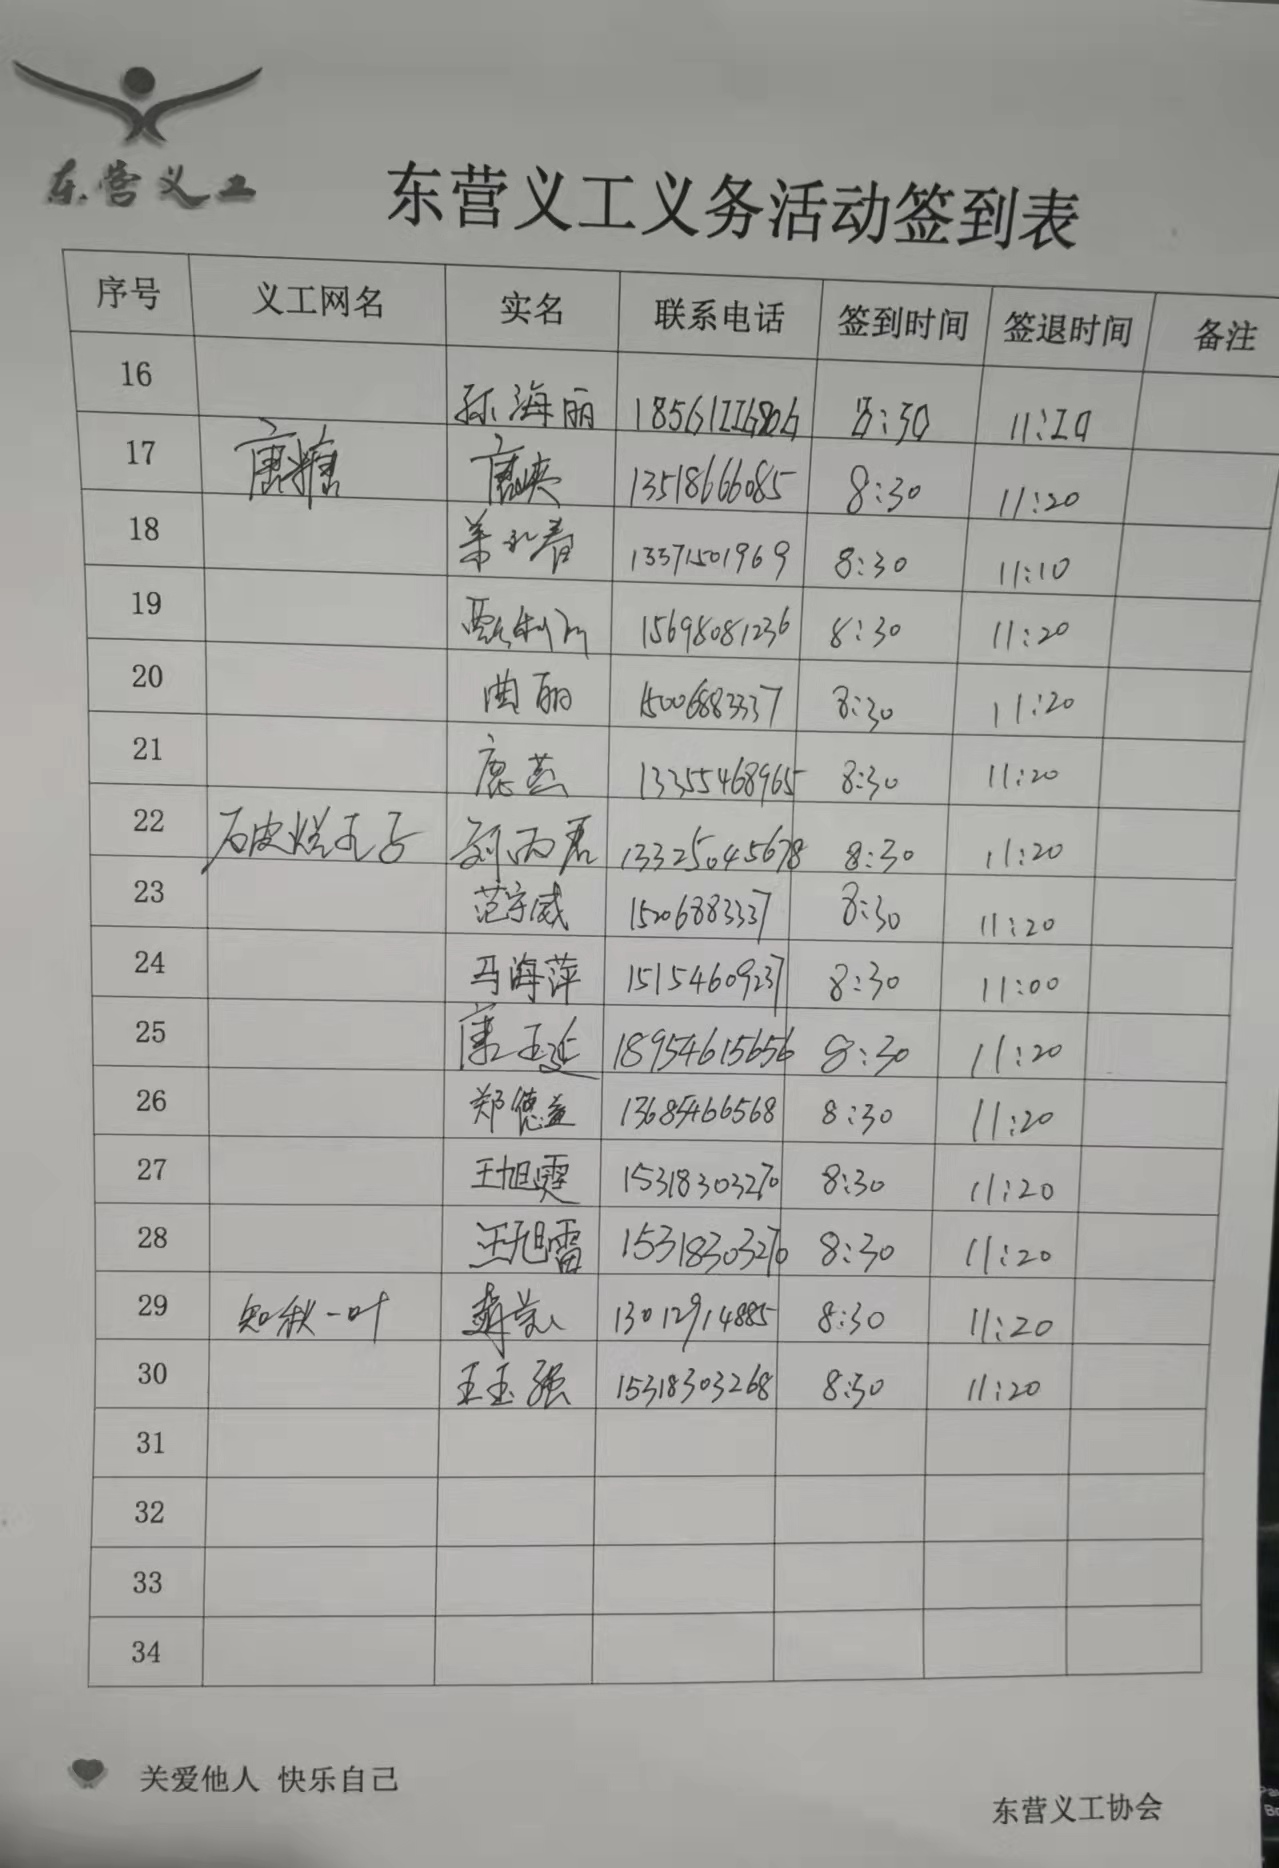 东营义工
东营义工义务活动签到表
序号 义工网名 实名 联系电话 签到时间 签退时间 备注
16 孙海丽 8:30 11:20
17 唐糖 唐峡 13518666085 8:30 11:20
18 13371501969 8:30 11:10
19 甄利 15698081236 8:30 11:20
20 曲丽 15006883337 8:30 11:20
21 鹿燕 13355468965 8:30 11:20
22 13325045678 8:30 11:20
23 范宇威 15206883337 8:30 11:20
24 马海萍 15154609237 8:30 11:00
25 唐玉延 18954615656 8:30 11:20
26 郑德益 13685466568 8:30 11:20
27 王旭霆 15318303270 8:30 11:20
28 王旭雷 15318303270 8:30 11:20
29 知秋一叶 13012914885 8:30 11:20
30 王玉强 15318303268 8:30 11:20
31
32
33
34
关爱他人 快乐自己
东营义工协会